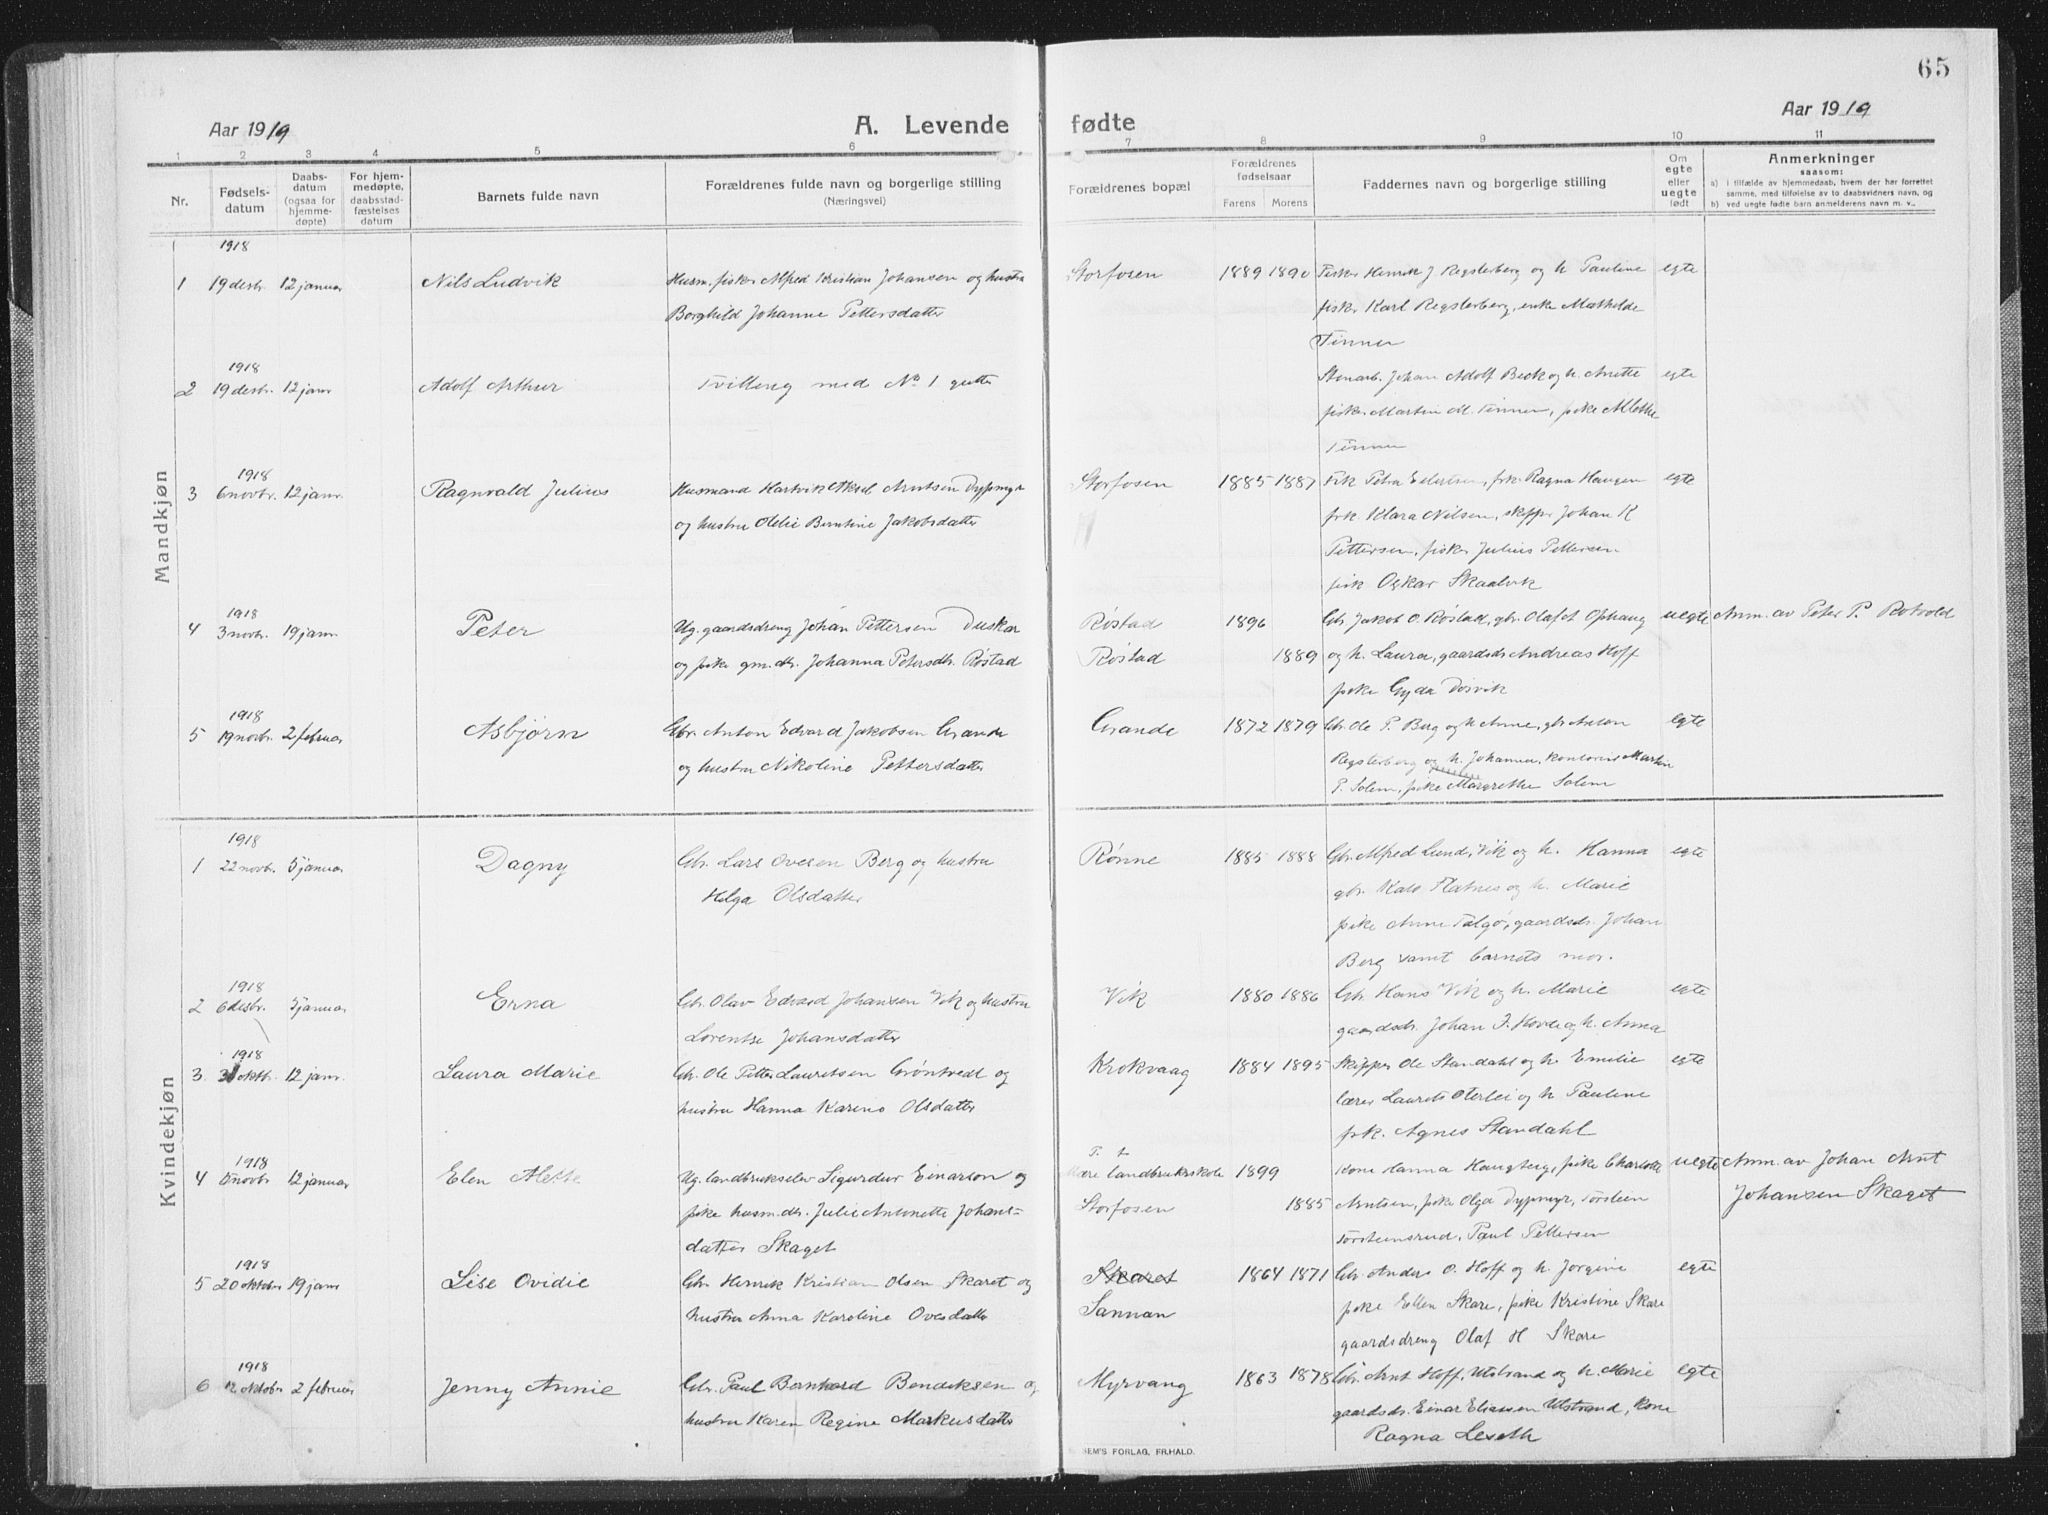 65
Aar 1919
A. Levende fødte
Aar 1919
1 2 3 4 5 6 7 8 9 10 11
Nr.
Fødsels-
datum
Daabs-
datum
(ogsaa for
hjemme-
døpte)
For hjem-
medøpte,
daabsstad-
fæstelses
datum
Barnets fulde navn
Forældrenes fulde navn og borgerlige stilling
(Næringsvei)
Forældrenes bopæl
Forældrenes
fødselsaar
Farens Morens
Faddernes navn og borgerlige stilling
Om
egte
eller
uegte
født
Anmerkninger
saasom:
a) i tilfælde av hjemmedaab, hvem der har forrettet
samme, med tilføielse av to daabsvidners navn, og
b) ved uegte fødte barn anmelderens navn m. v.,
Mandkjøn
1918
1 19 desbr. 12 januar Nils Ludvik Husm. fisker Alfred Kristian Johansen og hustru Storfosen 1889 1890 Fisker Henrik J Regsterberg og h. Pauline egte
Borghild Johanne Pettersdatter fisker Karl Regsterberg, enke Mathilde
Tinnen
1918
2 19 desbr. 12 janr Adolf Arthur Tvilling med No 1 gutter Stenarb. Johan Adolf Beck og h. Anette egte
fisker Martin M. Tinnen, pike Alette
Tinnen
1918
3 6 novbr. 12 janr. Ragnvald Julius Husmand Hartvik Aksel Arntsen Dypmyr Storfosen 1885 1887 Frk Petra Eilertsen, frk. Ragna Haugen egte
og hustru Oldie Berntine Jakobsdatter frk. Klara Nilsen, skipper Johan K
Pettersen, fisker Julius Pettersen
fisk Oskar Skaalvik
1918
4 3 novbr. 19 janr. Peter Ug. gaardsdreng Johan Pettersen Duskar Røstad 1896 Gbr. Jakob O. Røstad, gbr. Olaf et Ophaug uegte Anm. av Peter P. Rotvold
og pike gm. dtr. Johanna Petersdtr. Røstad Røstad 1889 og h. Laura, gaardsdr Andreas Hoff
pike Gyda Dørvik
1918
5 19 novbr. 2 februar Asbjørn Gbr. Anton Edvard Jakobsen Grande Grande 1872 1879 Gbr. Ole P. Berg og h Anne, gbr Anton egte
og hustru Nikoline Pettersdatter Regsterberg og h. Johanna, kontorist Martin
P. Solem, pike Margrethe Solem
Kvindekjøn
1918
1 22 novbr. 5 januar Dagny Gbr. Lars Ovesen Berg og hustru Rønne 1885 1888 Gbr. Alfred Lund, Vik og h. Hanna egte
Helga Olsdatter gbr. Karo Flatnes og h. Marie
pike Anne Talgø, gaardsdr. Johan
Berg samt barnets mor.
1918
2 6 desbr. 5 januar Erna Gbr. Olav Edvard Johansen Vik og hustru Vik 1880 1886 Gbr. Hans Vik og h. Marie egte
Lorentse Johansdatter gaardsdr. Johan J. Hovde og h. Anna
1918
3 31 oktbr. 12 janr. Laura Marie Gbr. Ole Petter Lauritsen Grøntvedt og Krokvaag 1884 1895 Skipper Ole Standahl og h. Emilie egte
hustru Hanna Karine Olsdatter lærer Laurits Oterlei og h Pauline
frk. Agnes Standahl
1918
4 5 novbr 12 januar Elen Alette Ug. landbrukselev Sigurdur Einarson og T. t. Mære landbruksskole 1899 Kone Hanna Haugberg, pike Charlotte uegte Anm. av Johan Arnt
pike husm. dtr. Julie Antonette Johans- Storfosen 1885 Arntsen, pike Olga Dypmyr, Torstein Johansen Skaget
datter Skaget Torsteinsrud, Paul Pettersen
1918
5 20 oktober 19 janr Lise Ovidie Gbr. Henrik Kristian Olsen Skaret og Skaret 1864 1871 Gbr. Anders O. Hoff og h. Jørgine egte
hustru Anna Karoline Ovesdatter Sannan pike Ellen Skare, pike Kristine Skare
gaardsdreng Olaf H Skare
1918
6 12 oktober 2 februar Jenny Annie Gbr. Paul Bernhard Bendiksen og Myrvang 1863 1878 Gbr. Arnt Hoff, Utstrand og h. Marie egte
hustru Karen Regine Markusdatter gaardsdr. Einar Eliassen Utstrand, kone
Ragna Leseth
SEM'S FORLAG, FR.HALD.